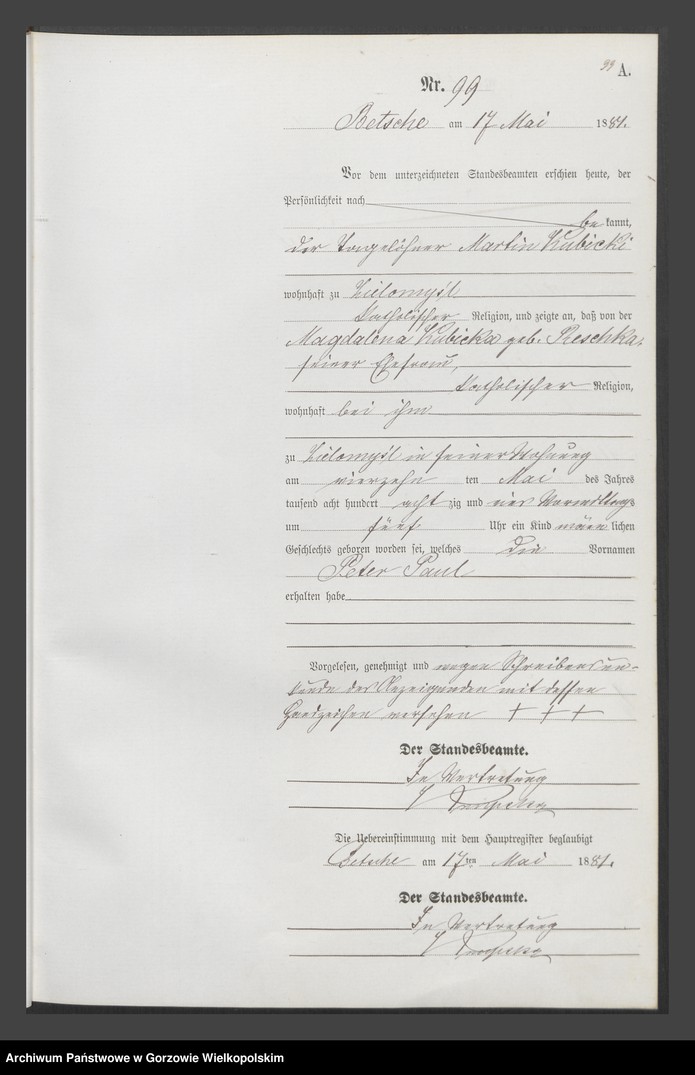 99 A.
Nr. 99
Betsche am 17 Mai 1881.
Vor dem unterzeichneten Standesbeamten erschien heute, der
Persönlichkeit nach
be kannt,
der Tagelöhner Martin Kubicki
wohnhaft zu Zielomysl
katholischer Religion, und zeigte an, daß von der
Magdalena Kubicka geb. Reschka,
seiner Ehefrau,
katholischer Religion,
wohnhaft bei ihm
zu Zielomysl in seiner Wohnung
am vierzehn ten Mai des Jahres
tausend acht hundert acht zig und eins Vormittags
um fünf Uhr ein Kind männ lichen
Geschlechts geboren worden sei, welches die Vornamen
Peter Paul
erhalten habe
Vorgelesen, genehmigt und wegen Schreibensun-
kunde des Anzeigenden mit dessen
Handzeichen versehen + + +
Der Standesbeamte.
In Vertretung
Die Uebereinstimmung mit dem Hauptregister beglaubigt
Betsche am 17ten Mai 1881.
Der Standesbeamte.
In Vertretung
Archiwum Państwowe w Gorzowie Wielkopolskim